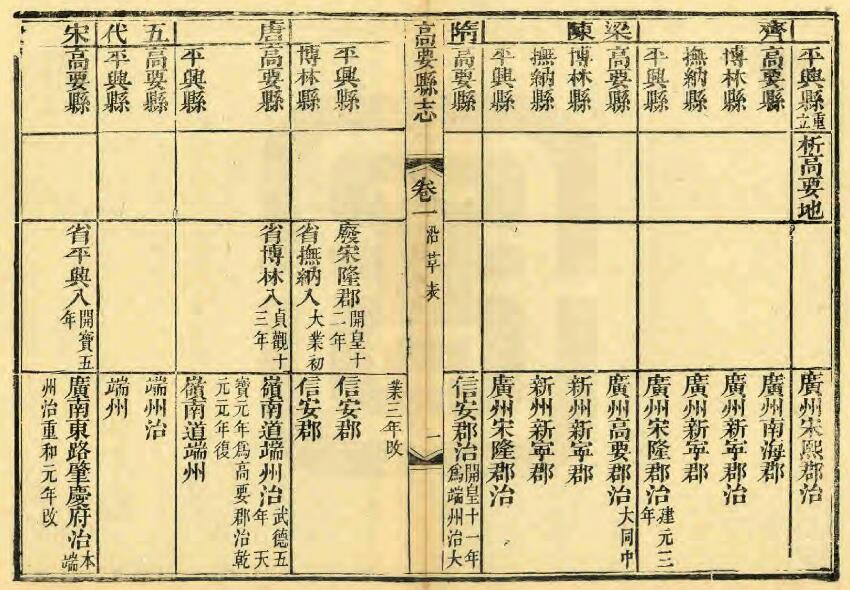 平興縣重立
析高要地
廣州宋熙郡治
齊
高要縣
廣州南海郡
博林縣
廣州新寧郡治
撫納縣
廣州新寧郡
平興縣
廣州宋隆郡治建元三年
梁
陳
高要縣
廣州高要郡治大同中
博林縣
新州新寧郡
撫納縣
新州新寧郡
平興縣
廣州宋隆郡治
隋
高要縣
信安郡治開皇十一年爲端州治大
高要縣志
卷一
沿革表
一
業三年改
平興縣
廢宋隆郡開皇十二年
信安郡
博林縣
省撫納入大業初
信安郡
唐
高要縣
省博林入貞觀十三年
嶺南道端州治武德五年天
寶元年爲高要郡治乾
元元年復
平興縣
嶺南道端州
五代
高要縣
端州治
平興縣
端州
宋
高要縣
省平興入開寶五年
廣南東路肇慶府治本端
州治重和元年改